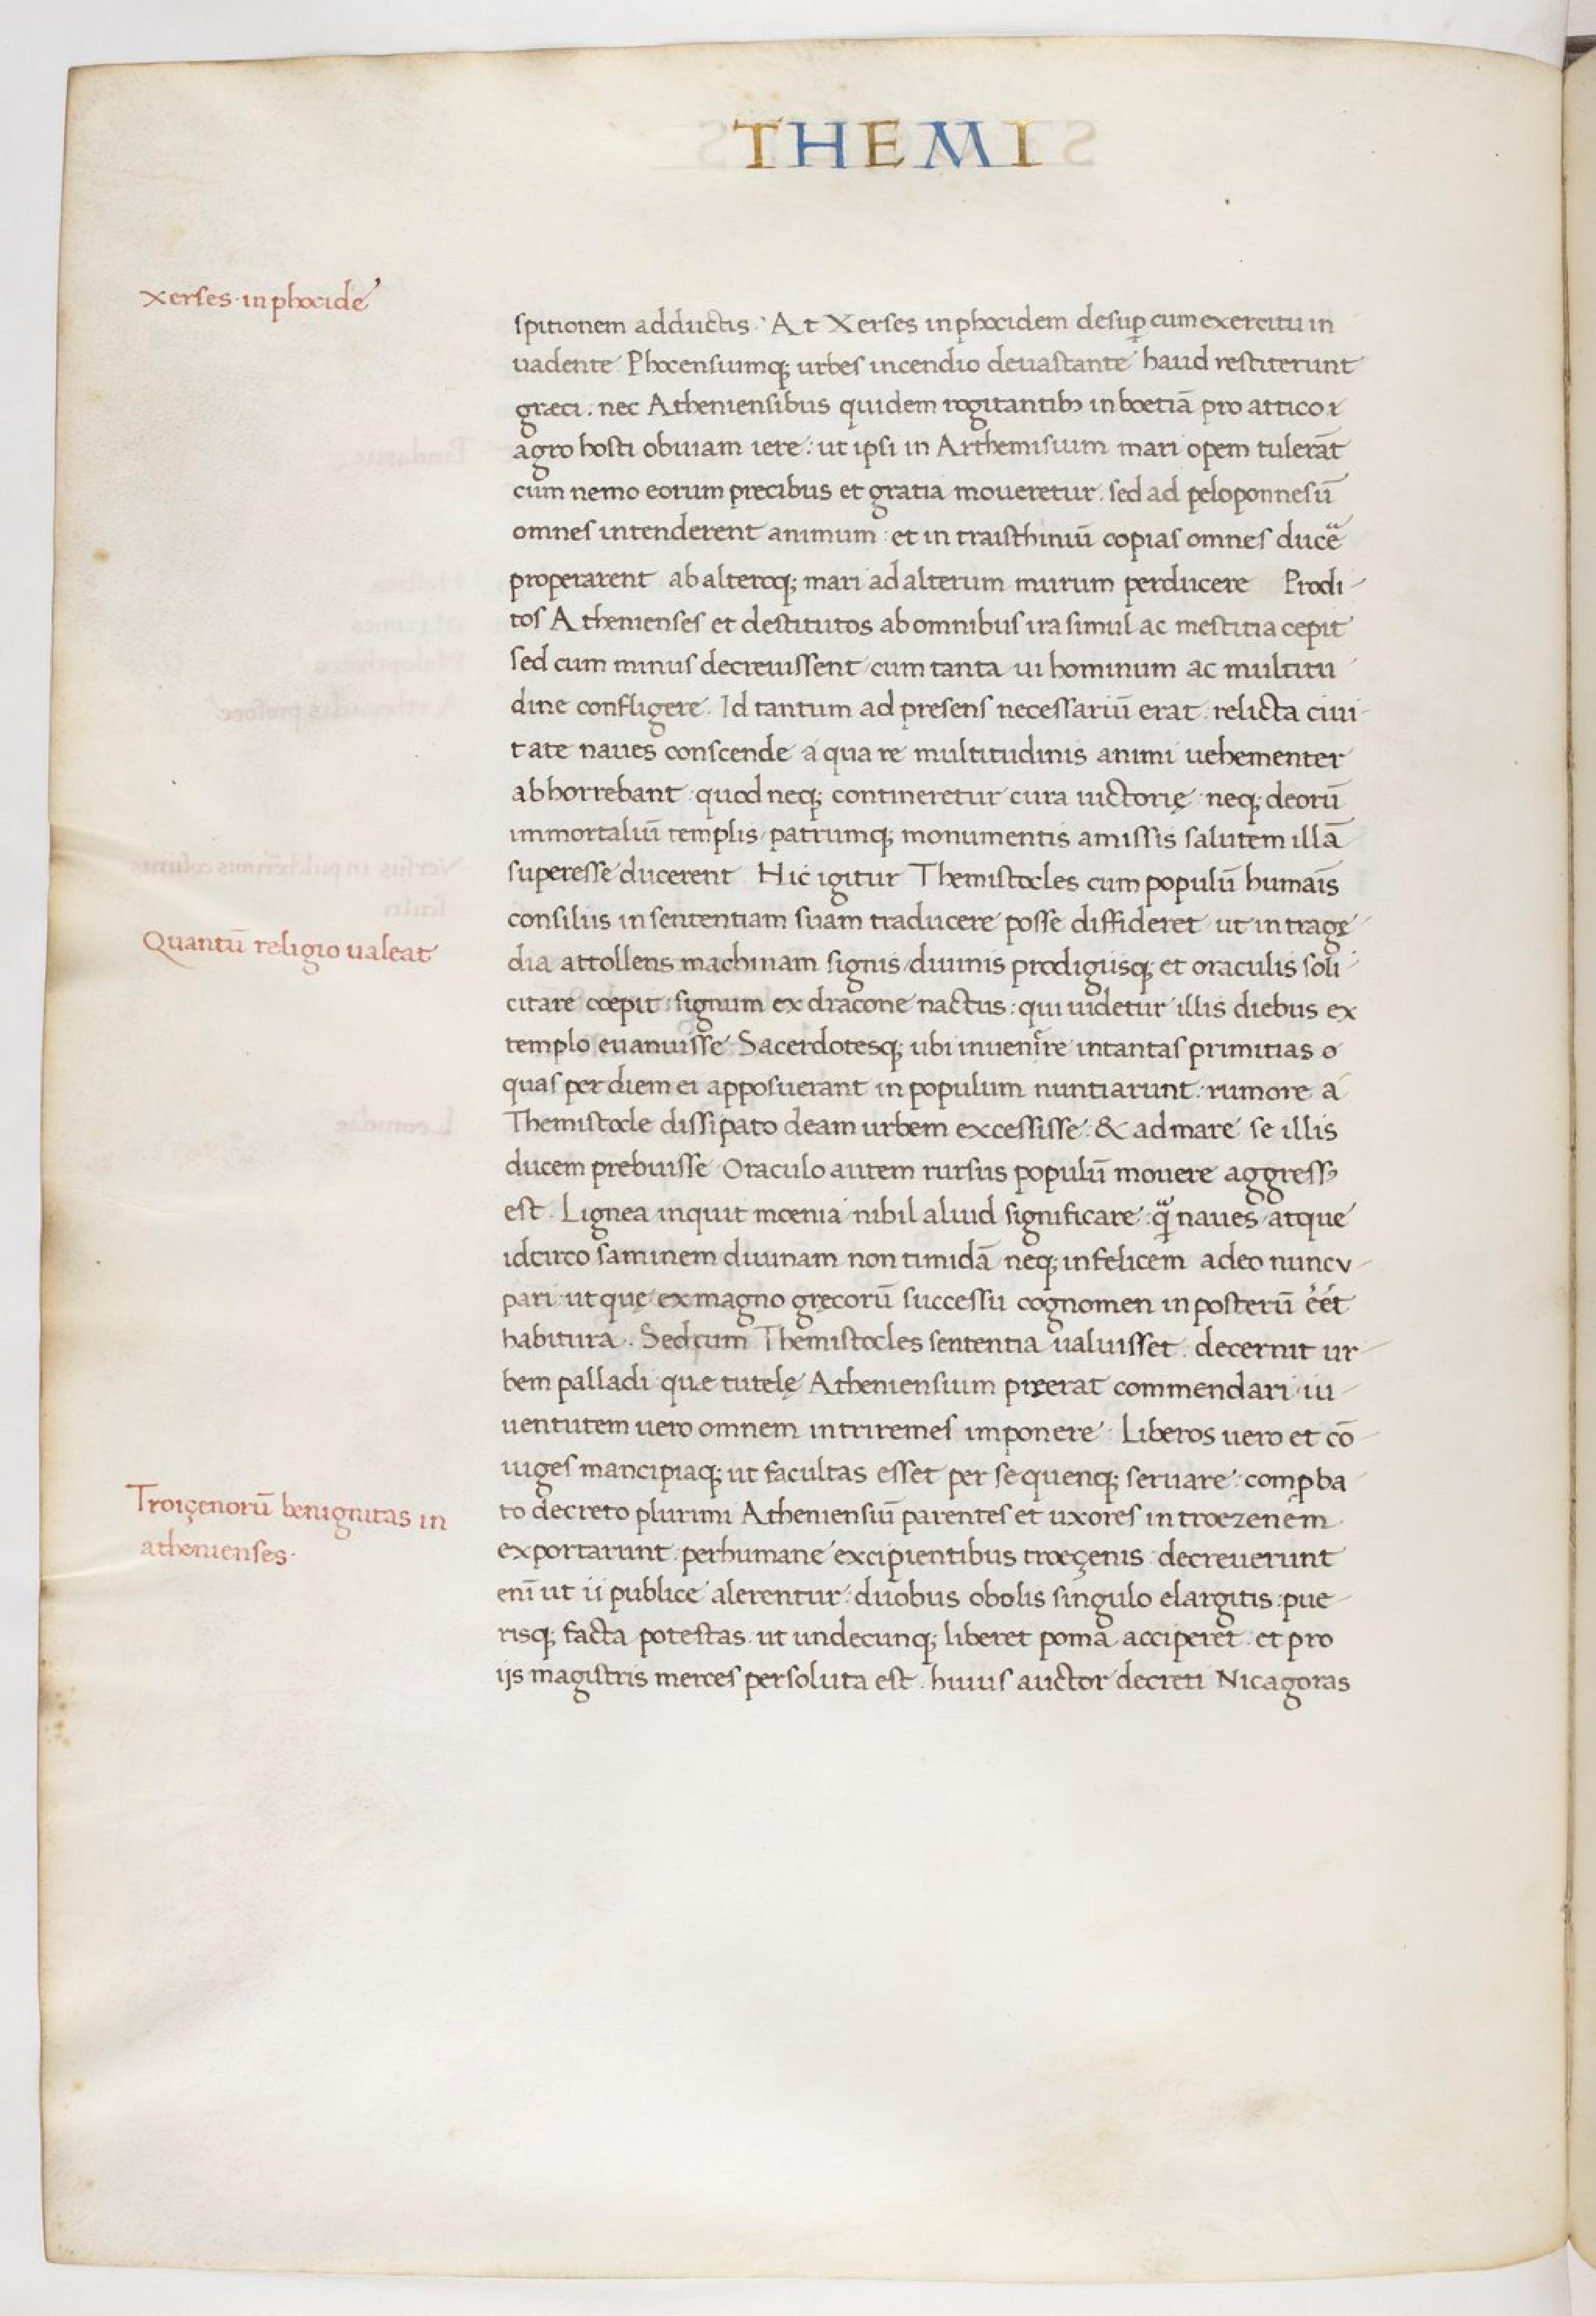 THEMI
Xerses in phocidē
spitionem adductis. At Xerses in phocidem desup̱ cum exercitu in
uadente Phocensiumq; urbes incendio deuastante haud restiterunt
græci. nec Atheniensibus quidem rogitantibꝰ in boetiā pro atticoꝝ
agro hosti obuiam iere: ut ipsi in Arthemisium mari opem tulerāt
cum nemo eorum precibus et gratia moueretur. sed ad peloponnesū
omnes intenderent animum: et in traisthiniū copias omnes ducē
properarent ab alteroq; mari ad alterum murum perducere Prodi-
tos Athenienses et destitutos ab omnibus ira simul ac mestitia cepit
sed cum minus decreuissent cum tanta ui hominum ac multitu
dine confligere. Id tantum ad presens necessariū erat. relicta ciui-
tate naues conscende a qua re multitudinis animi uehementer
abhorrebant: quod neq; contineretur cura uictorię neq; deorū
immortaliū templis patrumq; monumentis amissis salutem illā
superesse ducerent Hic igitur Themistocles cum populū humais
consiliis in sententiam suam traducere posse diffideret ut in tragę
dia attollens machinam signis diuinis prodigiisq; et oraculis soli-
citare cœpit: signum ex dracone nactus: qui uidetur illis diebus ex
templo euanuisse Sacerdotesq; ubi inuenire intantas primitias ø
quas per diem ei apposuerant in populum nuntiarunt: rumore a
Themistocle dissipato deam urbem excessisse: & ad mare se illis
ducem prebuisse Oraculo autem rursus populū mouere aggressꝰ
est. Lignea inquit mœnia nihil aliud significare: q̄ naues atque
idcirco saminem diuinam non timidā neq; infelicem adeo nuncu-
pari: ut quę ex magno gręcorū successu cognomen in posterū eet
habitura. Sed cum Themistocles sententia ualuisset. decernit ur-
bem palladi quæ tutelę Atheniensium pręerat commendari iu-
uentutem uero omnem in triremes imponere. Liberos uero et cō-
iuges mancipiaq; ut facultas esset per se quenq; seruare: comꝓba
to decreto plurimi Atheniensiū parentes et uxores in troezenem
exportarunt. perhumane excipientibus troeçenis decreuerunt
enī ut ii publice alerentur: duobus obolis singulo elargitis: pue-
risq; facta potestas ut undecunq; liberet poma acciperet: et pro
ijs magistris merces persoluta est. huius auctor decreti Nicagoras
Quantū religio ualeat
Troiçenorū benignitas in
athenienses.